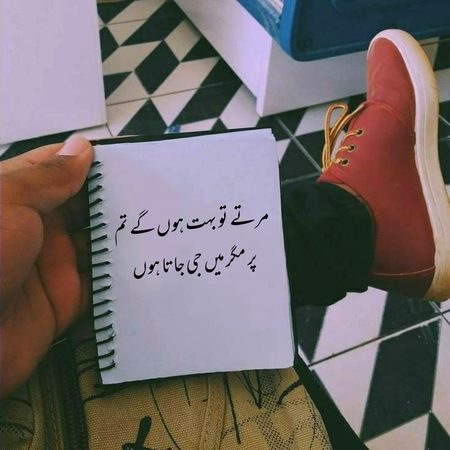 مرتے تو بہت ہوں گے تم
پر مگر میں جی جاتا ہوں